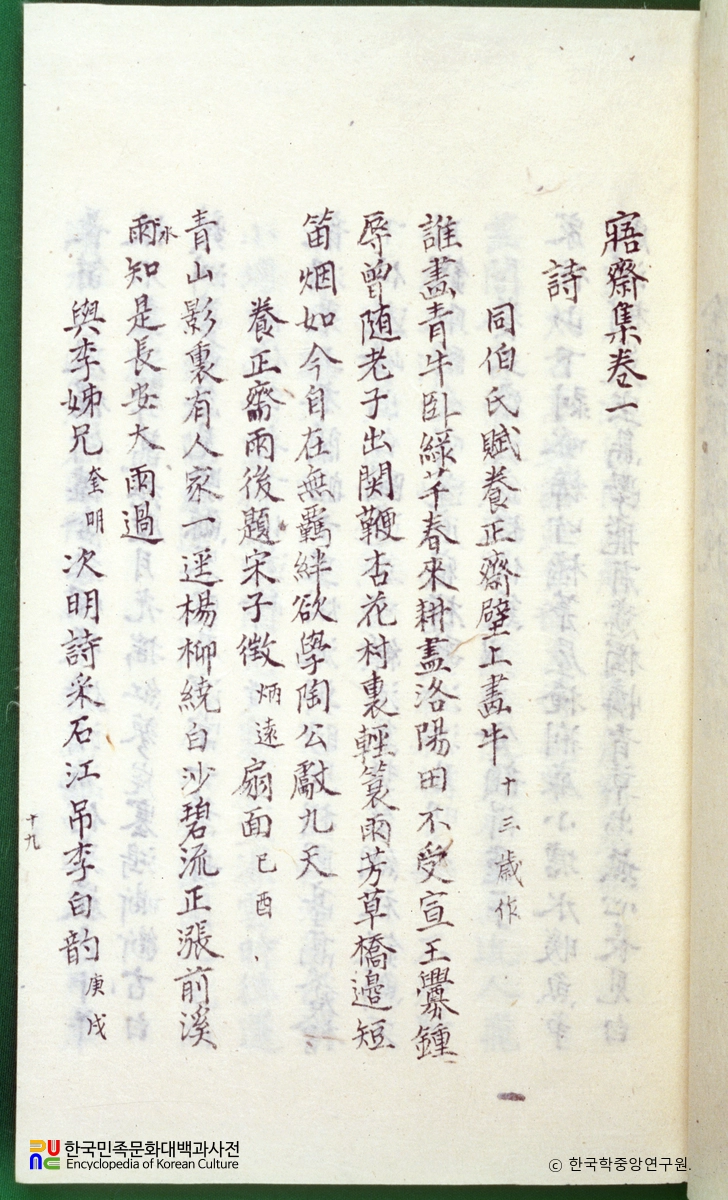 寤齋集卷一
詩
同伯氏賦養正齋壁上畵牛 十三歲作
誰畵靑牛臥綠芊春來耕盡洛陽田不受宣王釁鍾
辱曾随老子出関鞭杏花村裏輕簑雨芳草橋邉短
笛烟如今自在無羈絆欲學陶公獻九天
養正齋雨後題宋子徵 炳遠 扇面 己酉
青山影裏有人家一逕楊柳繞白沙碧流正漲前溪
水
雨知是長安大雨過
與李姊兄 奎明 次明詩采石江吊李白韵 庚戌
十九
한국민족문화대백과사전
Encyclopedia of Korean Culture
ⓒ 한국학중앙연구원.